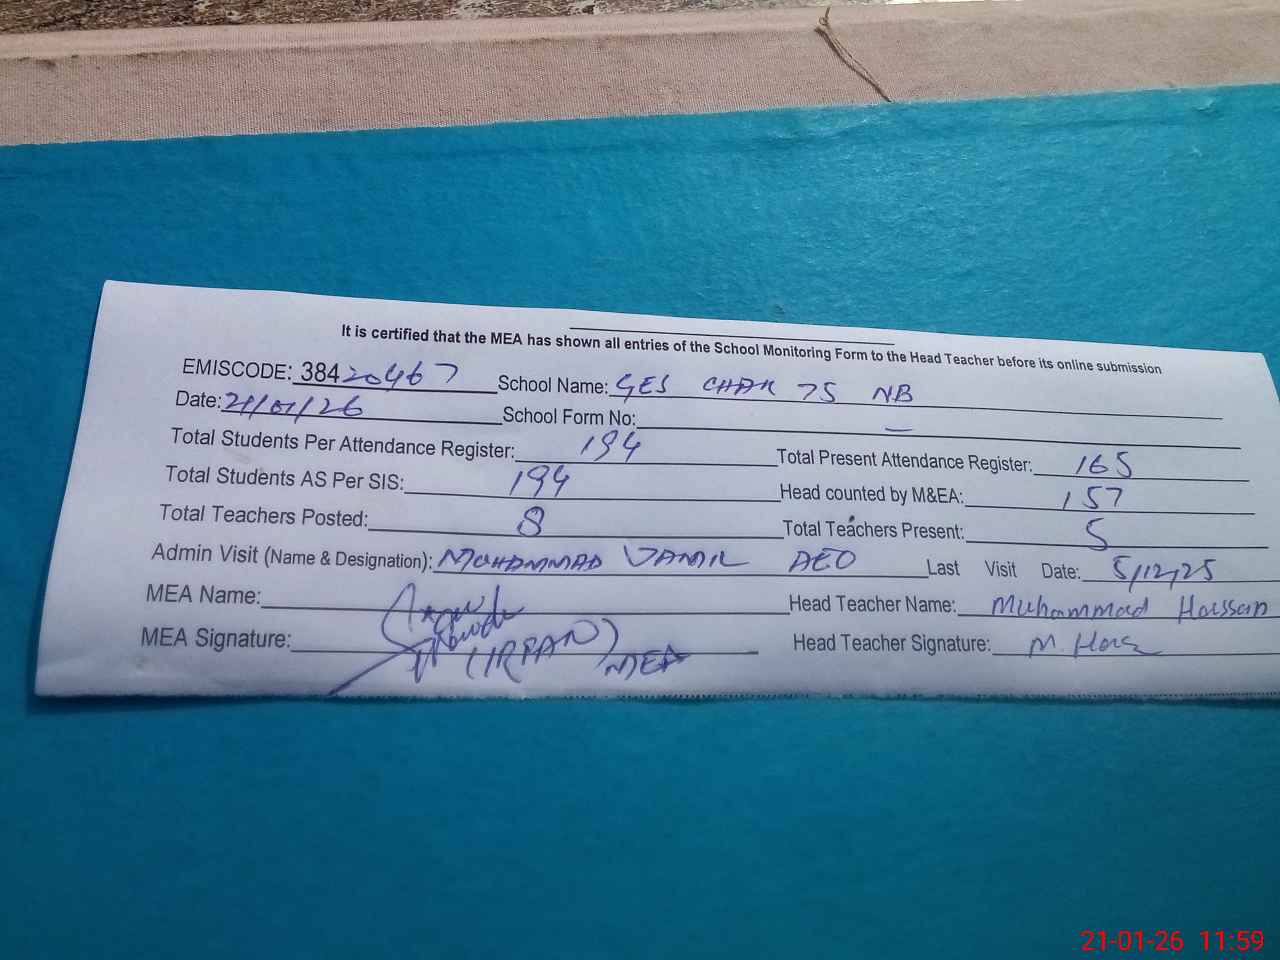 It is certified that the MEA has shown all entries of the School Monitoring Form to the Head Teacher before its online submission
EMISCODE: 38420467 School Name: GES CHAK 75 NB
Date: 21/01/26 School Form No: —
Total Students Per Attendance Register: 194 Total Present Attendance Register: 165
Total Students AS Per SIS: 194 Head counted by M&EA: 157
Total Teachers Posted: 8 Total Teachers Present: 5
Admin Visit (Name & Designation): MUHAMMAD JAMIL AEO Last Visit Date: 5/12/25
MEA Name: Head Teacher Name: Muhammad Hassan
MEA Signature: (IRFAN) MEA Head Teacher Signature: M. Hass
21-01-26 11:59